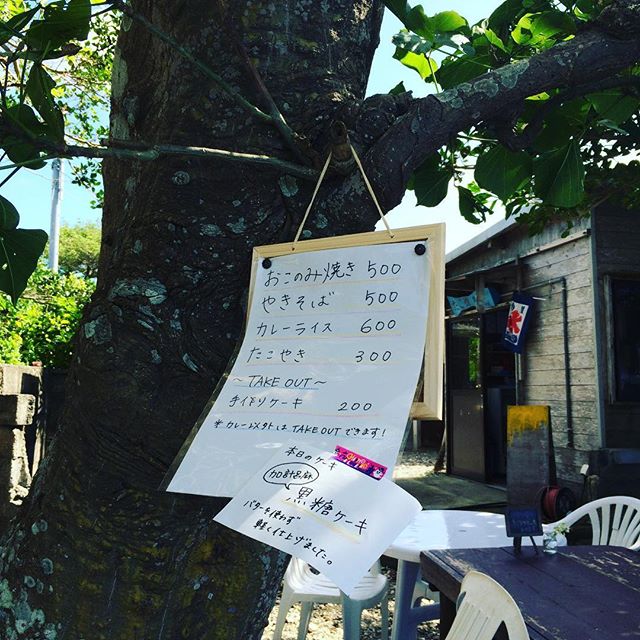 おこのみ焼き 500
やきそば 500
カレーライス 600
たこやき 300
～TAKE OUT～
手作りケーキ 200
※カレー以外は TAKE OUT できます!
本日のケーキ
加計呂麻
黒糖ケーキ
バターを使わず
軽く仕上げました。
氷